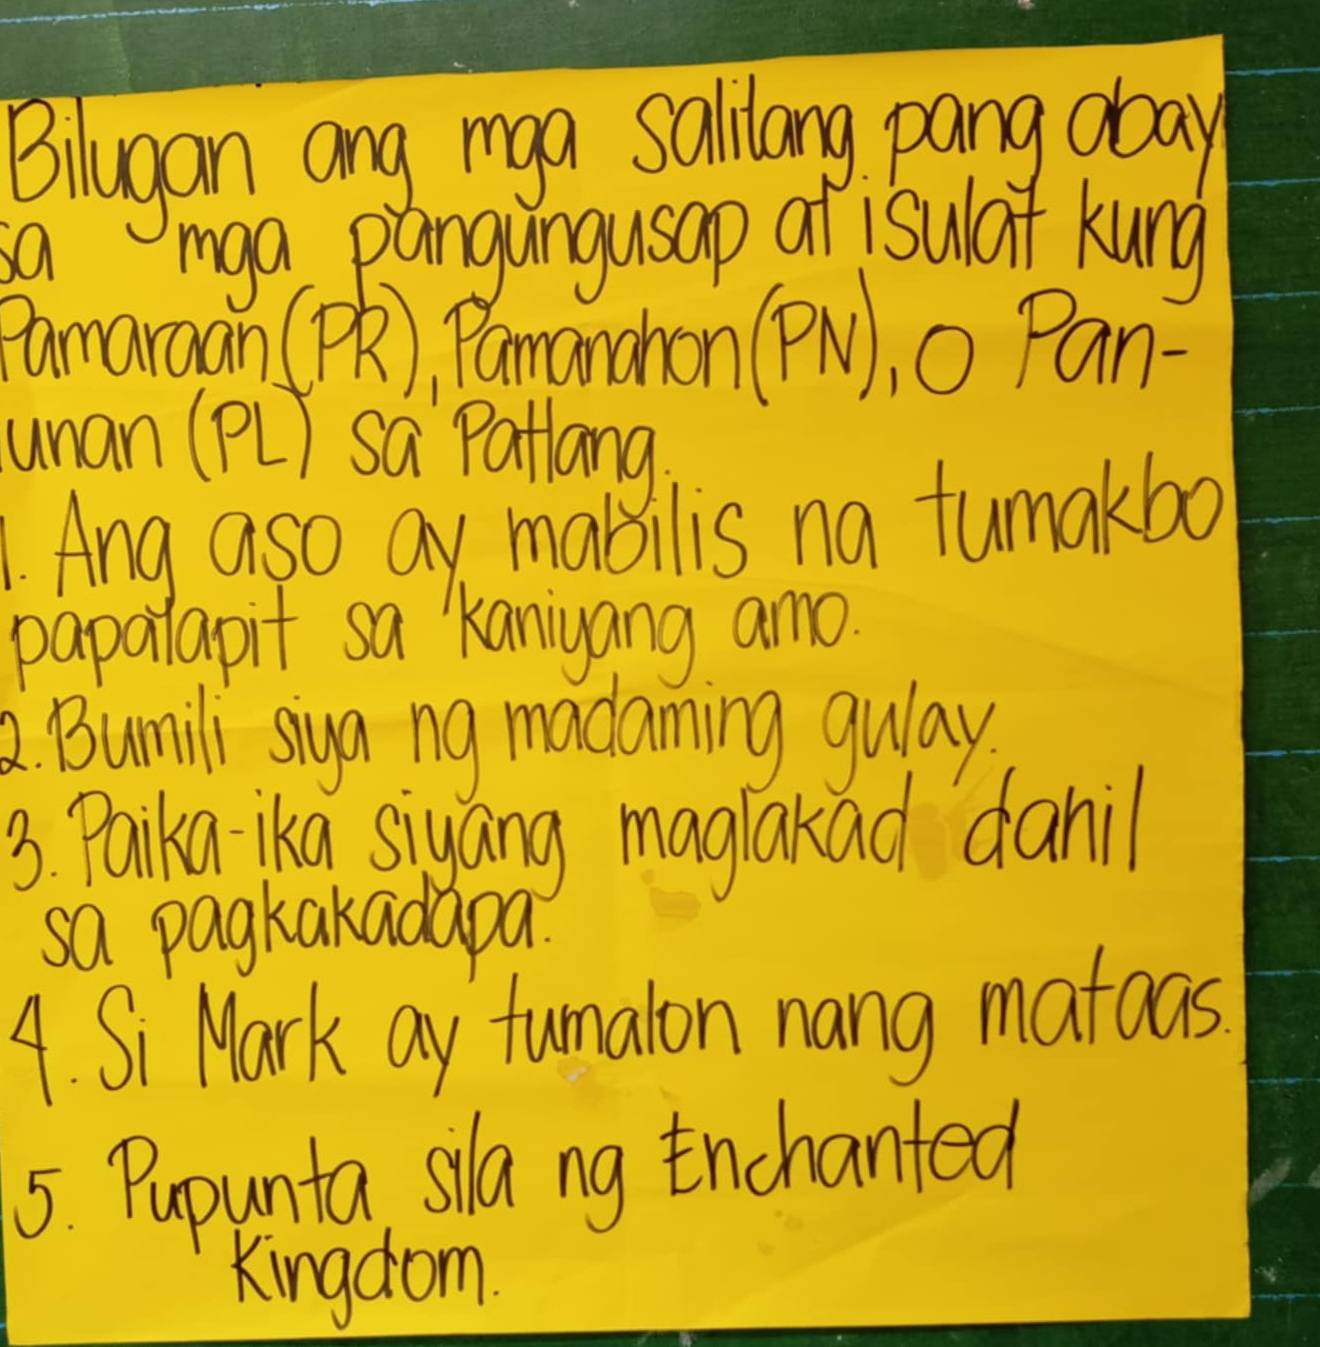 Bilugan ang mga salitang pang abay
sa mga pangungusap at isulat kung
Pamaraan (PR), Pamanahon (PN), o Pan-
lunan (PL) sa Patlang.
1. Ang aso ay mabilis na tumakbo
papalapit sa kaniyang amo.
2. Bumili siya ng madaming gulay.
3. Paika-ika siyang maglakad dahil
sa pagkakadapa.
4. Si Mark ay tumalon nang mataas.
5. Pupunta sila ng Enchanted
Kingdom.